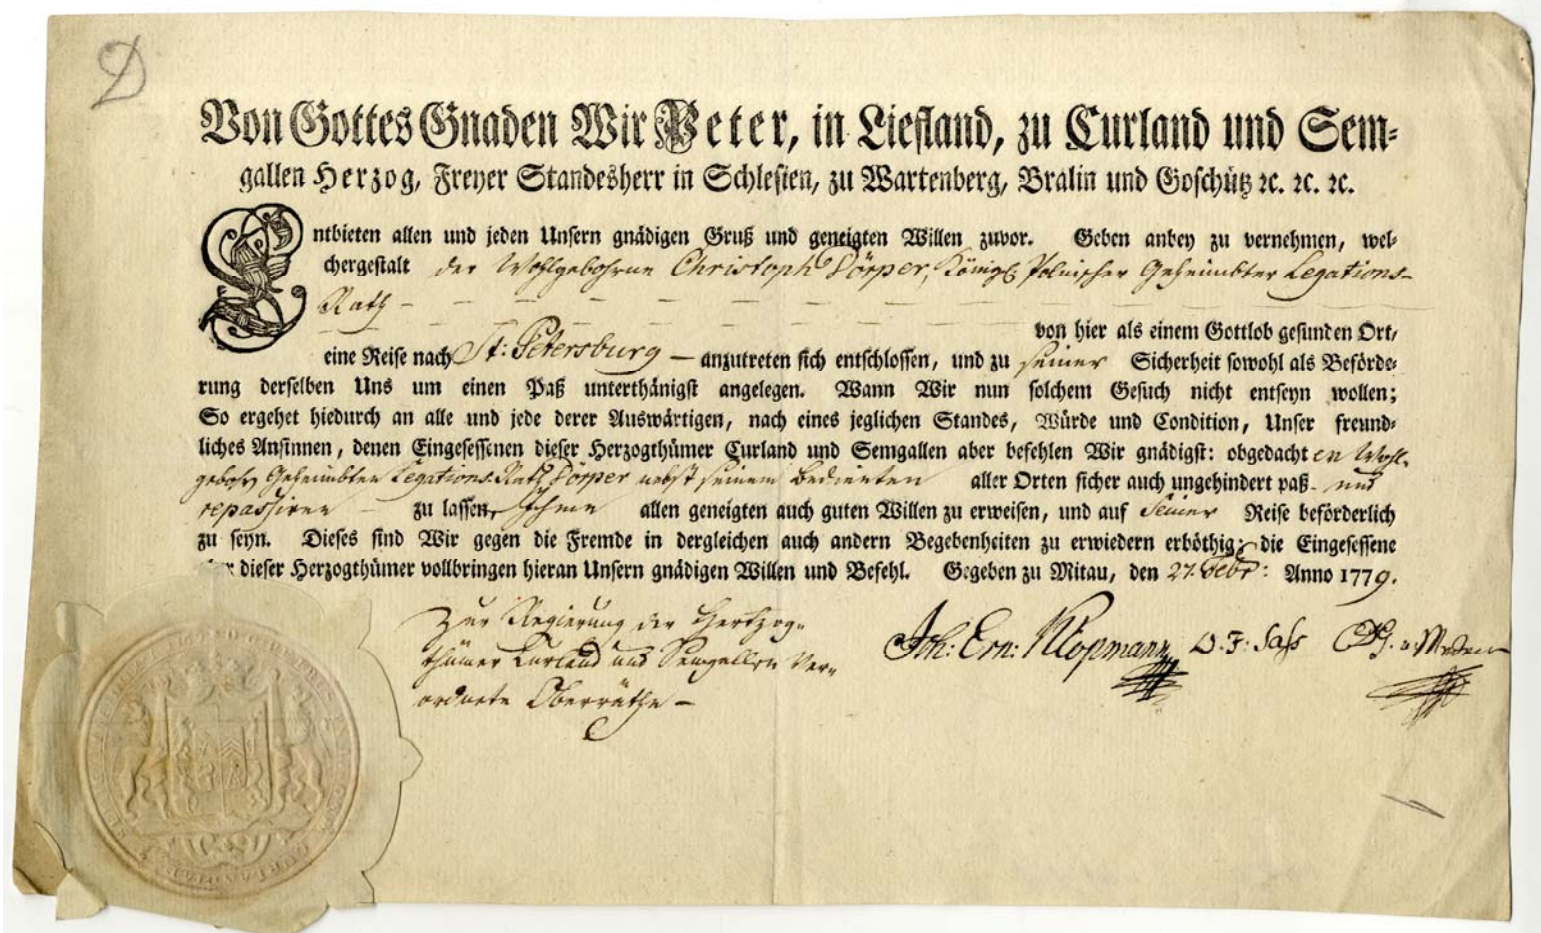 D
Von Gottes Gnaden Wir Peter, in Liefland, zu Curland und Sem-
gallen Herzog, Freyer Standesherr in Schlesien, zu Wartenberg, Bralin und Goschütz ꝛc. ꝛc. ꝛc.
Entbieten allen und jeden Unsern gnädigen Gruß und geneigten Willen zuvor. Geben anbey zu vernehmen, wel-
chergestalt der Wohlgebohrne Christoph Dörper, Königl: Polnischer Geheimbter Legations-
Rath — — — — — — — — —
von hier als einem Gottlob gesunden Ort,
eine Reise nach St: Petersburg — anzutreten sich entschlossen, und zu seiner Sicherheit sowohl als Beförde-
rung derselben Uns um einen Paß unterthänigst angelegen. Wann Wir nun solchem Gesuch nicht entseyn wollen;
So ergehet hiedurch an alle und jede derer Auswärtigen, nach eines jeglichen Standes, Würde und Condition, Unser freund-
liches Ansinnen, denen Eingesessenen dieser Herzogthümer Curland und Semgallen aber befehlen Wir gnädigst: obgedachten Wohl-
gebohr Geheimbten Legations-Rath Dörper nebst seinem Bedienten aller Orten sicher auch ungehindert paß- und
repassiren zu lassen, Ihme allen geneigten auch guten Willen zu erweisen, und auf Seiner Reise beförderlich
zu seyn. Dieses sind Wir gegen die Fremde in dergleichen auch andern Begebenheiten zu erwiedern erböthig; die Eingesessene
dieser Herzogthümer vollbringen hieran Unsern gnädigen Willen und Befehl. Gegeben zu Mitau, den 27. Febr: Anno 1779.
Zur Regierung der Hertzog-
thümer Curland und Semgallen Ver-
ordnete Oberräthe —
Joh: Ern: Klopmann D. F. Sass